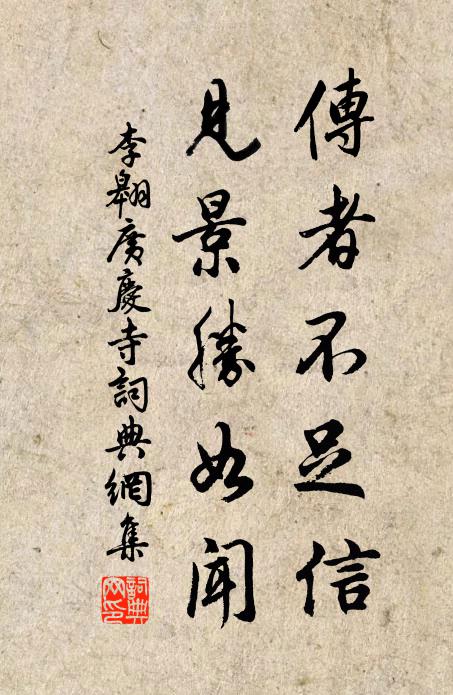 傳者不足信
見景勝如聞
李翱廣慶寺詞典網集
詞典
网印